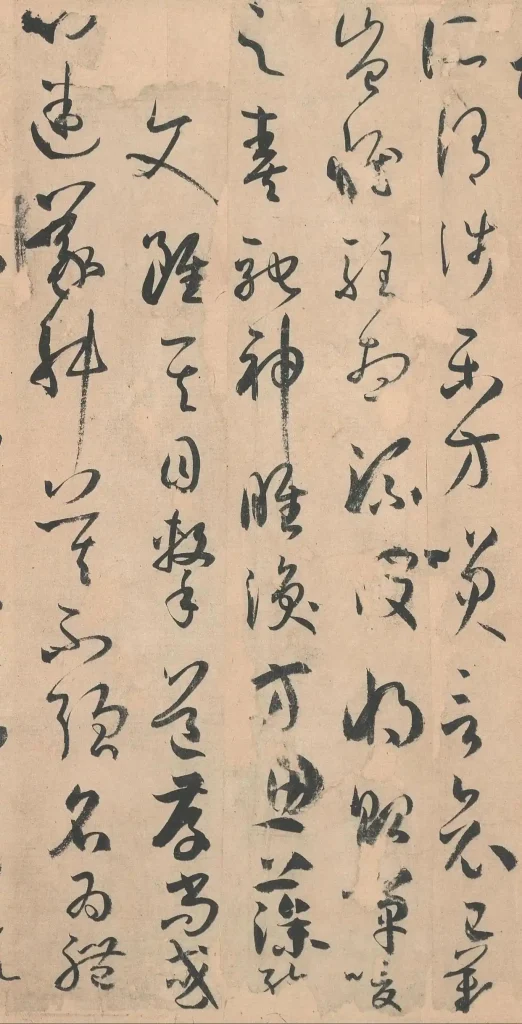 所謂涉樂方笑言哀已歎
豈惟駐想流波將貽嘽喛
之奏馳神睢渙方思藻繪
文雖其目擊道存尚或
心迷議舛莫不強名為體